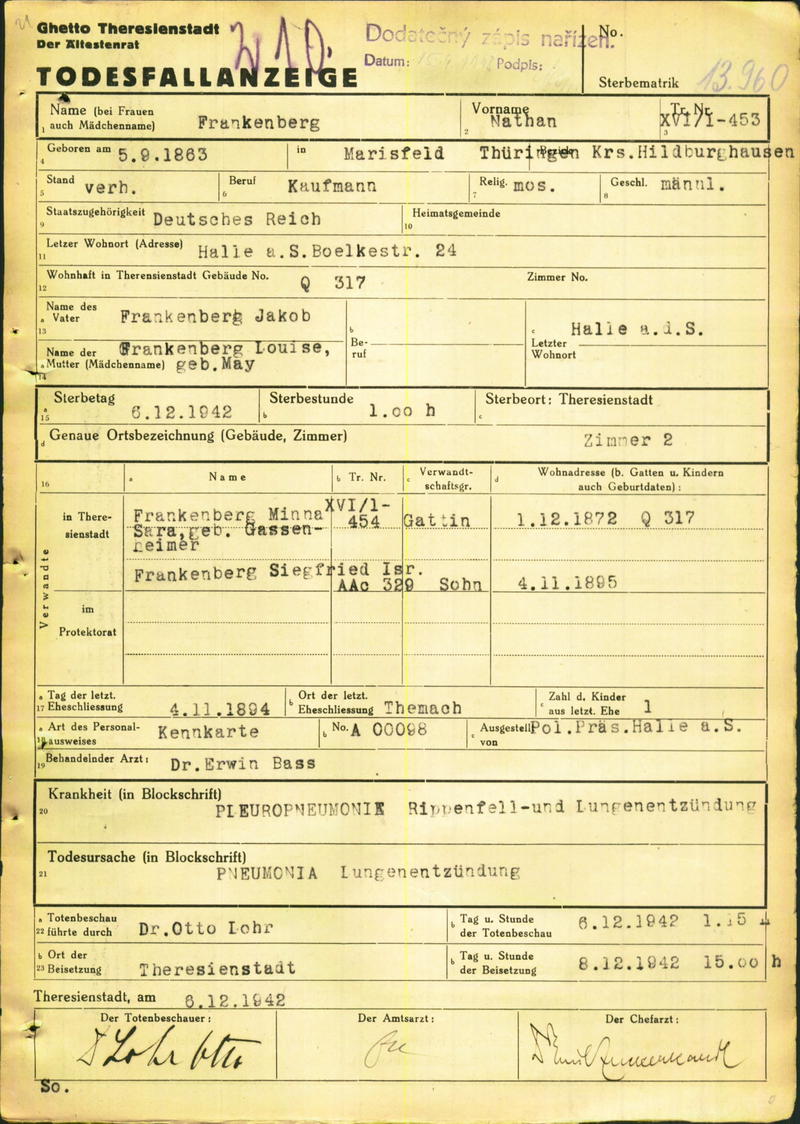 Ghetto Theresienstadt
Der Ältestenrat
TODESFALLANZEIGE
Dodatečný zápis nařízen.
Datum: Podpis:
No.
Sterbematrik 13.960
Name (bei Frauen
1 auch Mädchenname) Frankenberg
Vorname
2 Nathan
Tr. Nr.
3 XVI/1-453
4 Geboren am 5.9.1863 in Marisfeld Thüringen Krs.Hildburghausen
5 Stand verh. 6 Beruf Kaufmann 7 Relig. mos. 8 Geschl. männl.
9 Staatszugehörigkeit Deutsches Reich 10 Heimatsgemeinde
11 Letzer Wohnort (Adresse) Halle a.S.Boelkestr. 24
12 Wohnhaft in Theresienstadt Gebäude No. Q 317 Zimmer No.
13 Name des
a Vater Frankenberg Jakob
14 Name der Frankenberg Louise,
a Mutter (Mädchenname) geb.May
b Be-
ruf
c Halle a.d.S.
Letzter
Wohnort
a 15 Sterbetag 6.12.1942 b Sterbestunde 1.00 h c Sterbeort: Theresienstadt
d Genaue Ortsbezeichnung (Gebäude, Zimmer) Zimmer 2
16 a Name b Tr. Nr. c Verwandt-
schaftsgr. d Wohnadresse (b. Gatten u. Kindern
auch Geburtdaten) :
Verwandte
in There-
sienstadt
Frankenberg Minna XVI/1-
454 Gattin 1.12.1872 Q 317
Sara,geb. Gassen-
heimer
Frankenberg Siegfried Isr.
AAc 329 Sohn 4.11.1895
im
Protektorat
a Tag der letzt.
17 Eheschliessung 4.11.1894 b Ort der letzt.
Eheschliessung Themach c Zahl d. Kinder
aus letzt. Ehe 1
a Art des Personal-
18 ausweises Kennkarte b No. A 00098 c Ausgestellt
von Pol.Präs.Halle a.S.
19 Behandelnder Arzt: Dr.Erwin Bass
Krankheit (in Blockschrift)
20 PLEUROPNEUMONIE Rippenfell-und Lungenentzündung
Todesursache (in Blockschrift)
21 PNEUMONIA Lungenentzündung
a Totenbeschau
22 führte durch Dr.Otto Lohr b Tag u. Stunde
der Totenbeschau 6.12.1942
b Ort der
23 Beisetzung Theresienstadt b Tag u. Stunde
der Beisetzung 8.12.1942 15.00 h
Theresienstadt, am 6.12.1942
Der Totenbeschauer: Der Amtsarzt: Der Chefarzt:
D Lohr Otto
So.